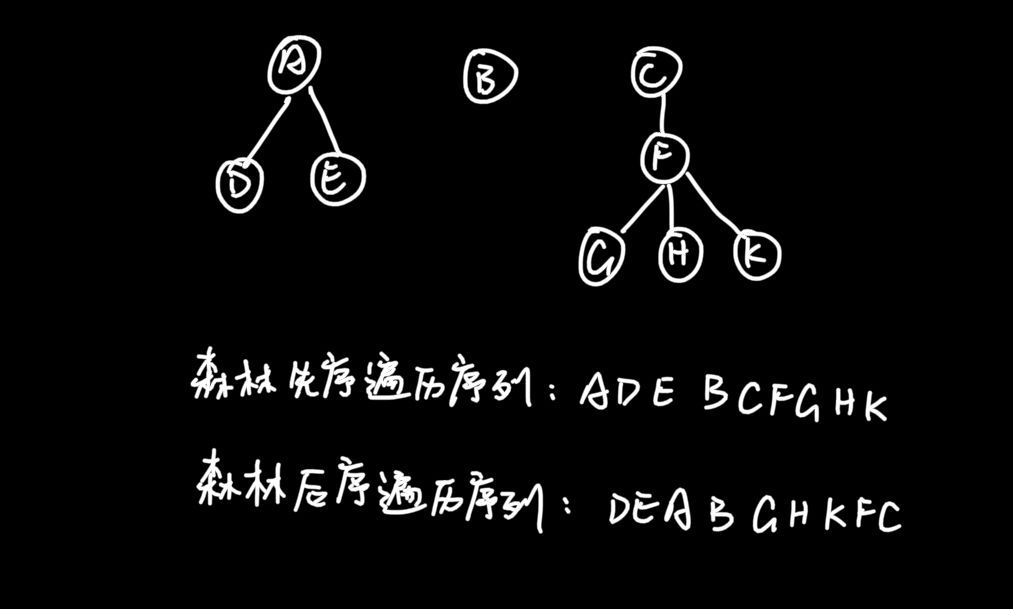 A B C
F
D E
G H K
森林先序遍历序列: ADE BCFGHK
森林后序遍历序列: DEA B GHKFC